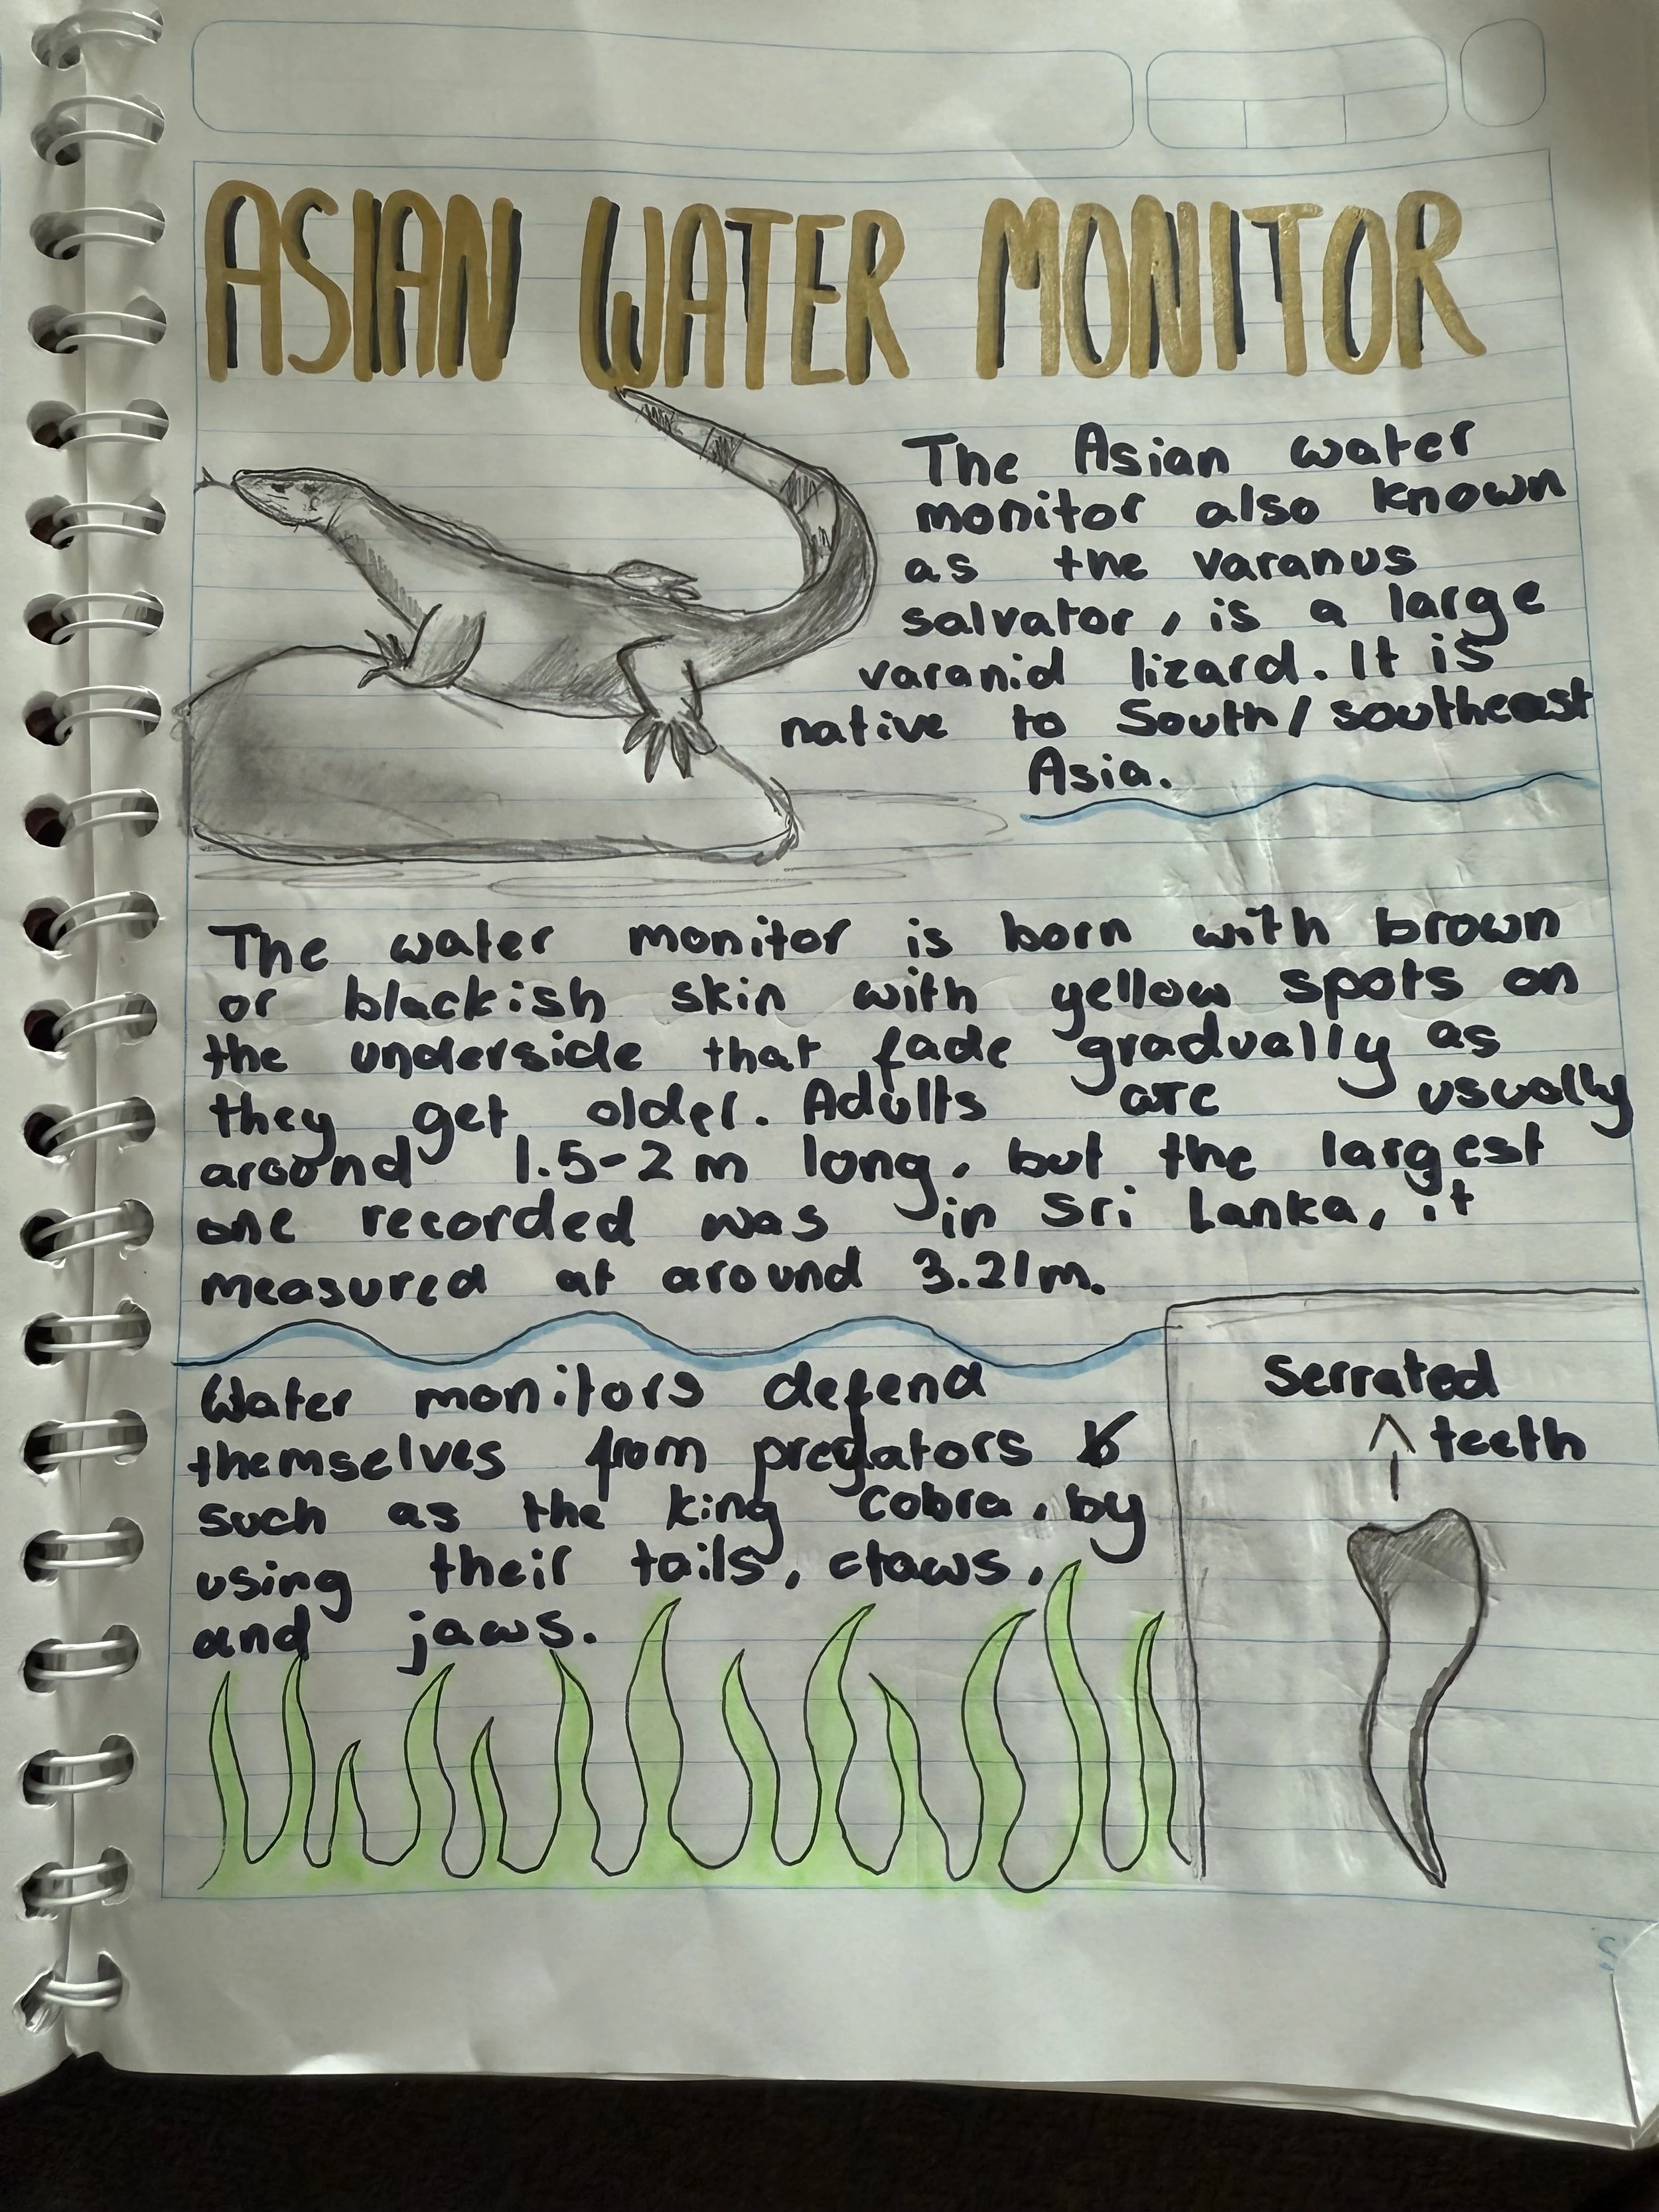 ASIAN WATER MONITOR
The Asian water
monitor also known
as the varanus
salvator, is a large
varanid lizard. It is
native to South/southeast
Asia.
The water monitor is born with brown
or blackish skin with yellow spots on
the underside that fade gradually as
they get older. Adults are usually
around 1.5-2m long, but the largest
one recorded was in Sri Lanka, it
measured at around 3.21m.
Water monitors defend
themselves from predators
such as the king cobra, by
using their tails, claws,
and jaws.
Serrated
teeth